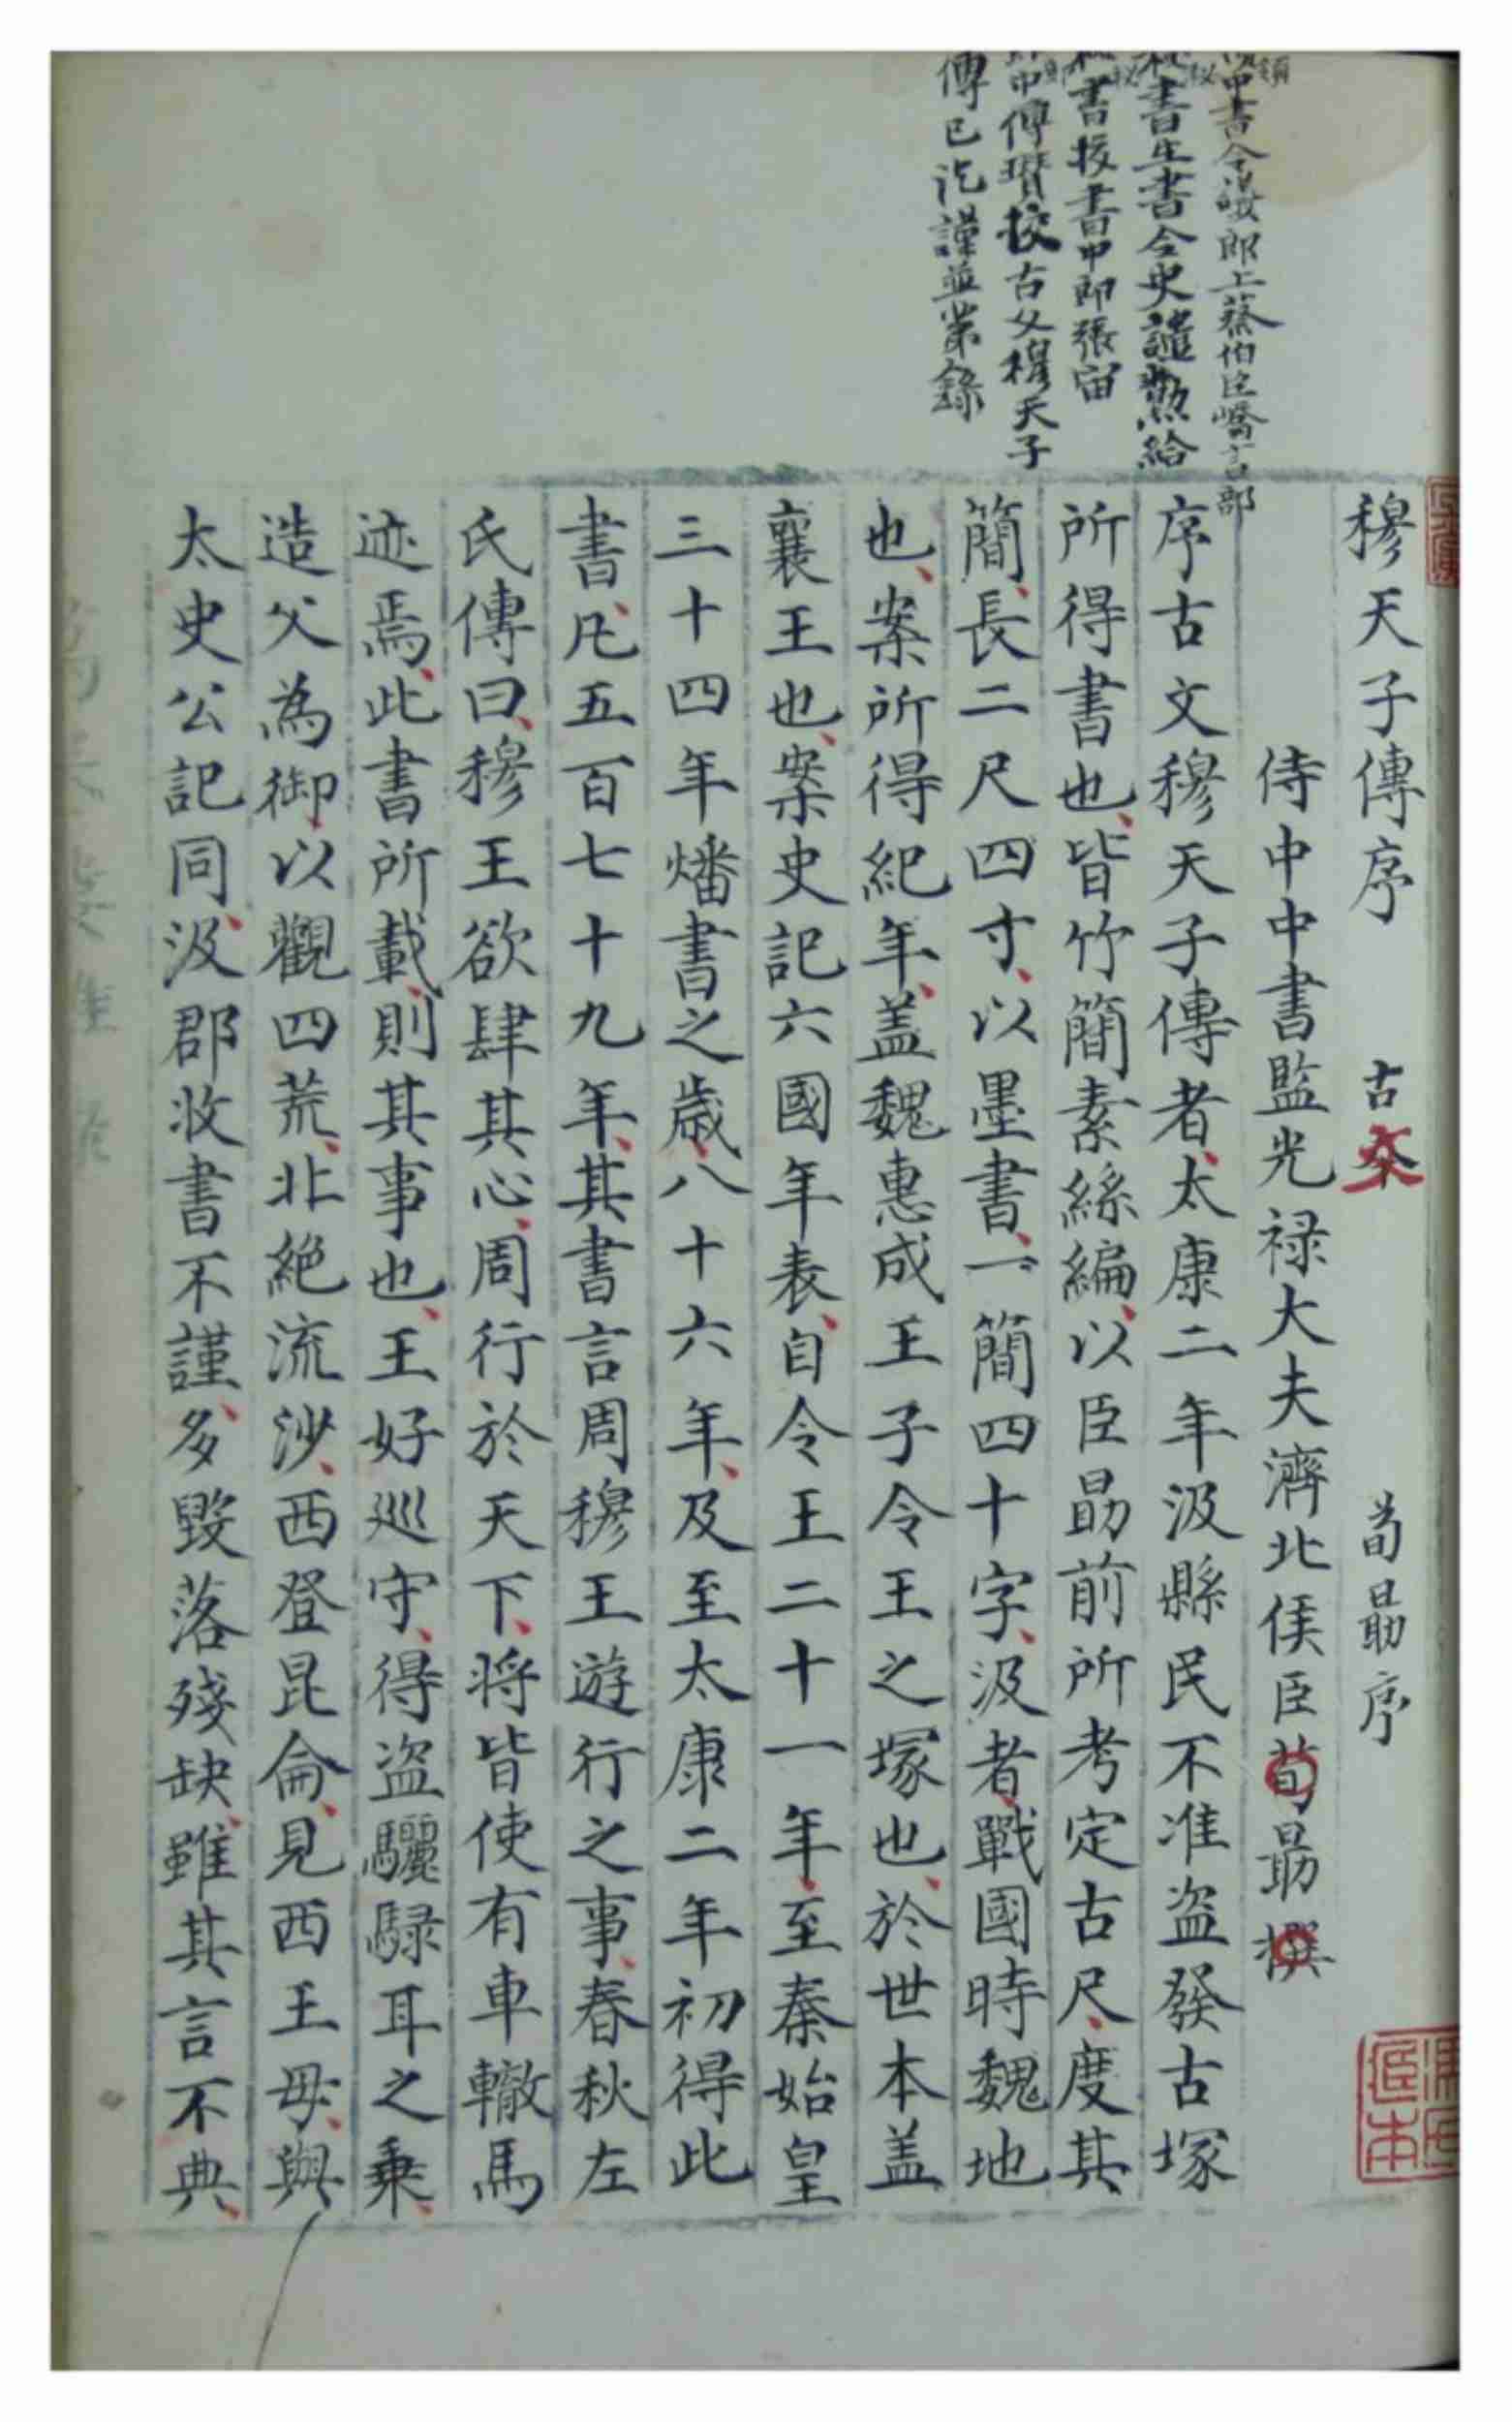 中書令議郎上蔡伯臣嶠言部
秘書主書令史譴勲給
書校書中郎張宙
中傅瓚校古文穆天子
傳已訖謹並第錄
穆天子傳序　古本　荀勗序
侍中中書監光禄大夫濟北侯臣荀勗撰
序古文穆天子傳者太康二年汲縣民不准盗發古塚
所得書也皆竹簡素絲編以臣勗前所考定古尺度其
簡長二尺四寸以墨書一簡四十字汲者戰國時魏地
也案所得紀年盖魏惠成王子令王之塚也於世本盖
襄王也案史記六國年表自令王二十一年至秦始皇
三十四年燔書之歲八十六年及至太康二年初得此
書凡五百七十九年其書言周穆王遊行之事春秋左
氏傳曰穆王欲肆其心周行於天下将皆使有車轍馬
迹焉此書所載則其事也王好巡守得盗驪騄耳之乗
造父為御以觀四荒北絶流沙西登昆侖見西王母與
太史公記同汲郡收書不謹多毀落殘缺雖其言不典